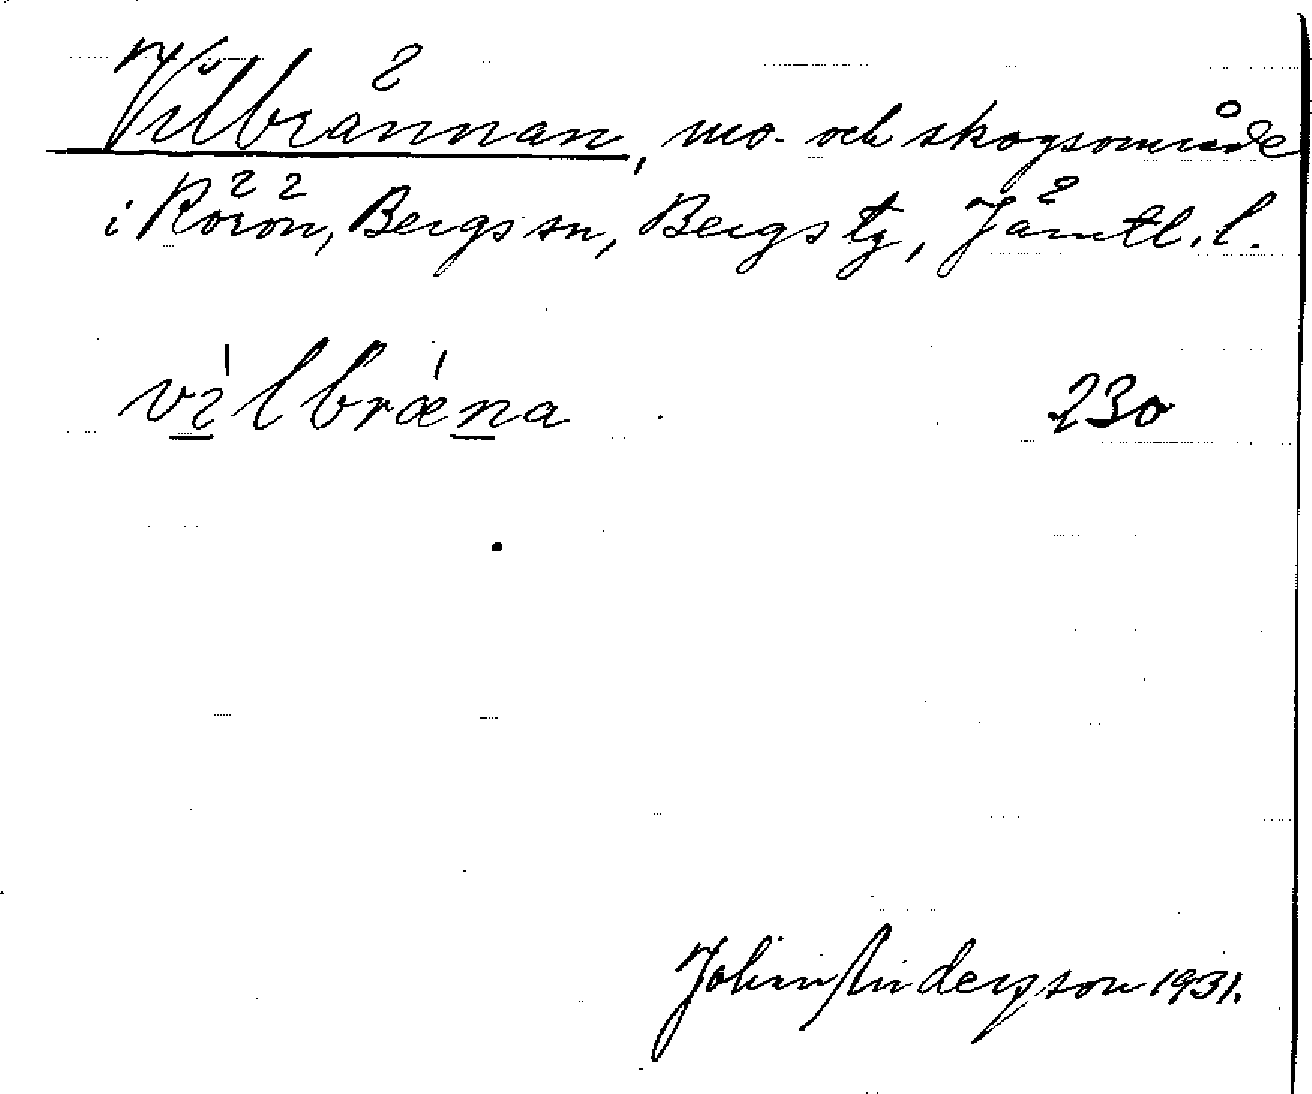 Vilbrännan, mo- och skogsområde
i Rörön, Bergs sn, Bergs tg, Jämtl. l.
vı̍lbræ̍na 230
John Andersson 1931.